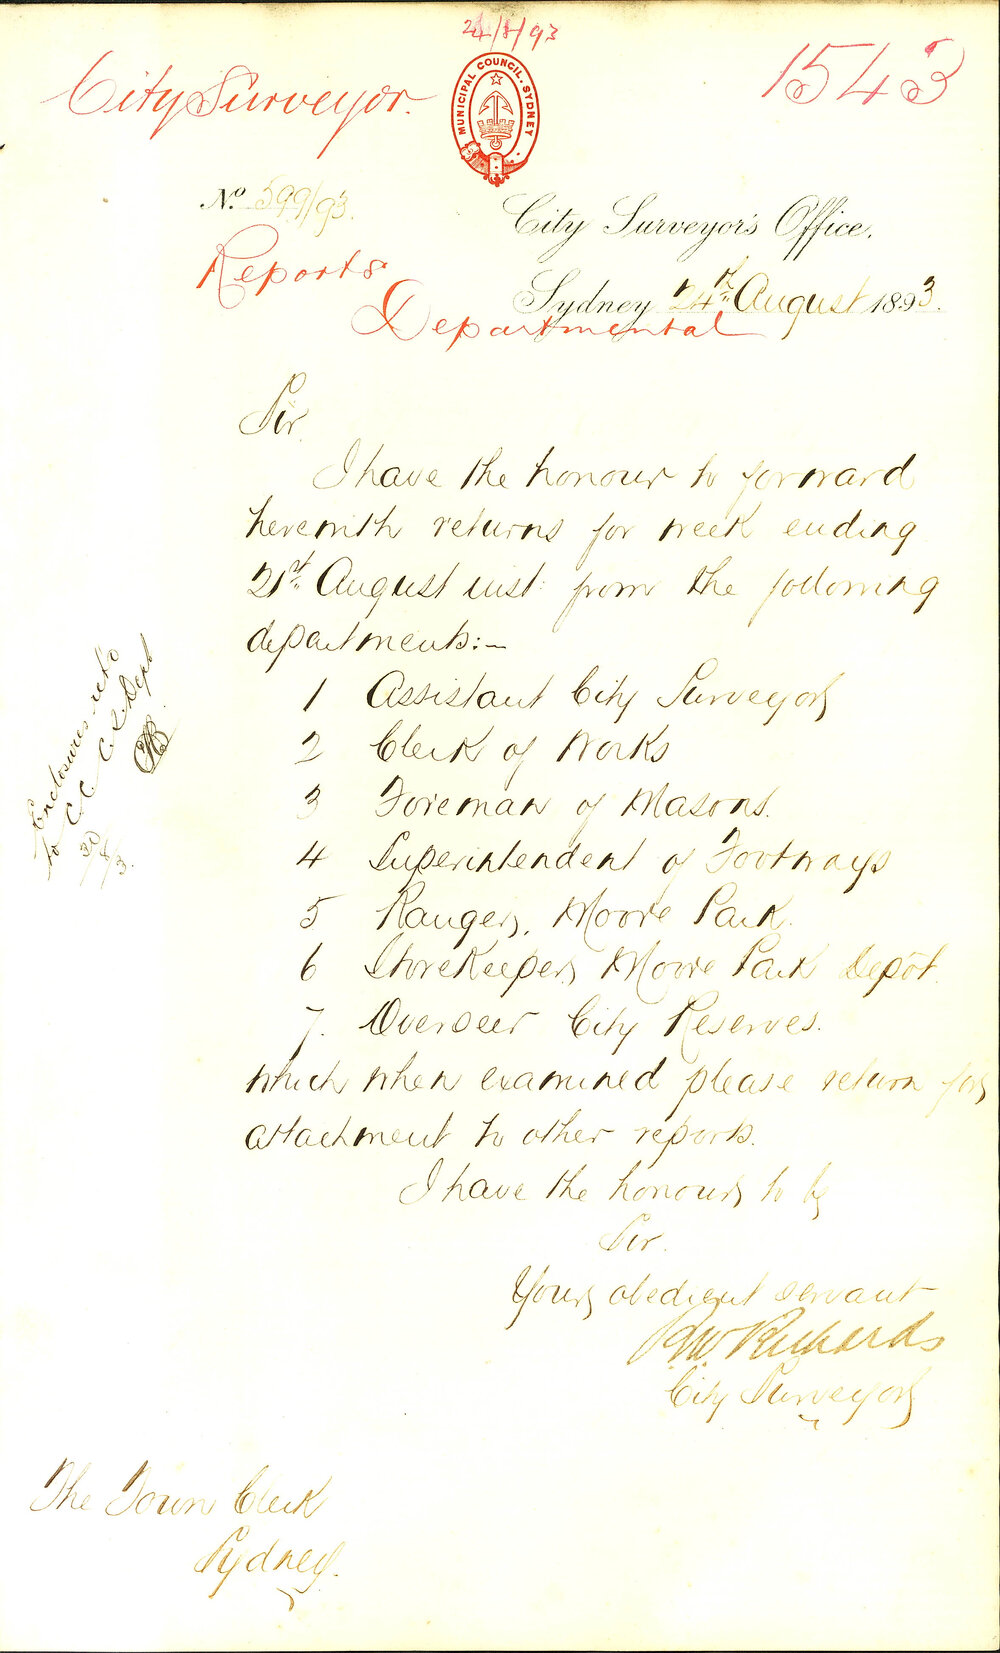 24/8/93
City Surveyor.
1543
MUNICIPAL COUNCIL. SYDNEY
No. 599/93.
City Surveyor's Office.
Reports
Sydney 24th August 1893.
Departmental
Sir
I have the honour to forward
herewith returns for week ending
21st August inst from the following
departments:-
1 Assistant City Surveyor
2 Clerk of Works
3 Foreman of Masons.
4 Superintendent of Footways
5 Ranger, Moore Park.
6 Storekeeper Moore Park Depôt.
7. Overseer City Reserves.
which when examined please return for
attachment to other reports.
I have the honour to be
Sir.
Your obedient servant
Richards
City Surveyor
Enclosures retd
to C.C. C.S. Dept
30/8/3.
The Town Clerk
Sydney.